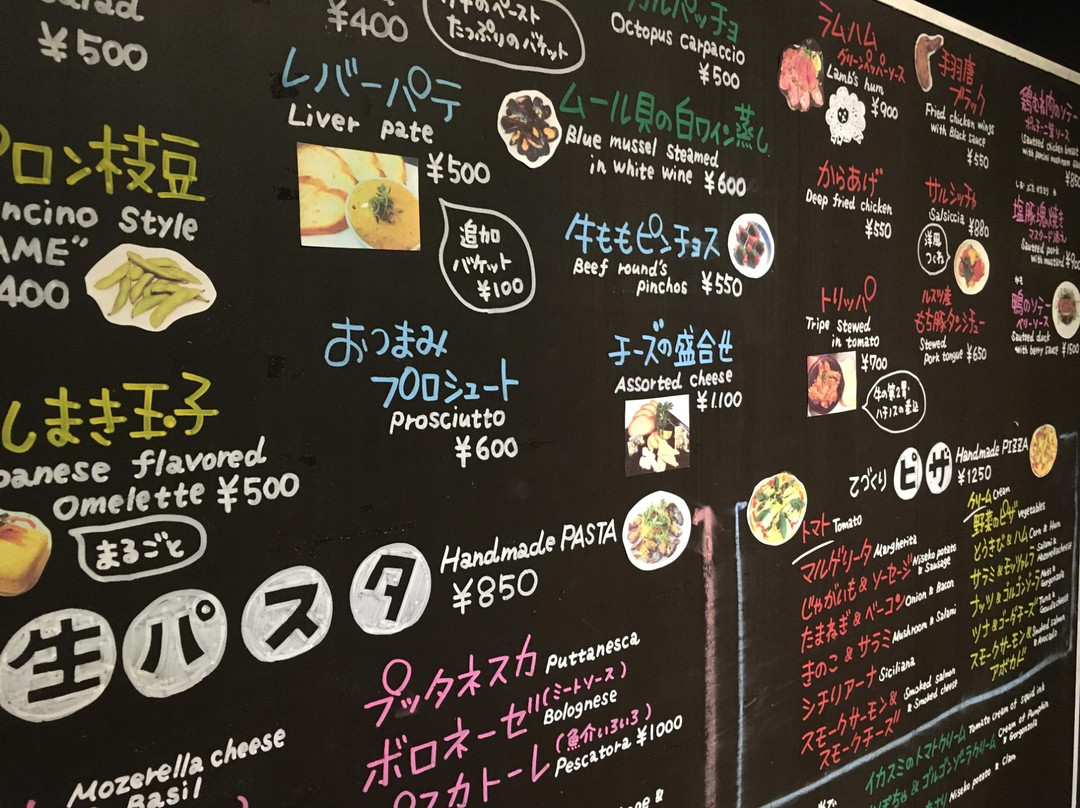 ¥500
¥400
たっぷりのバケット
レバーパテ
Liver pate
¥500
追加
バケット
¥100
ロン枝豆
ncino Style
AME"
400
しまき玉子
panese flavored
Omelette ¥500
まるごと
おつまみ
プロシュート
Prosciutto
¥600
Octopus carpaccio
¥500
ムール貝の白ワイン蒸し
Blue mussel steamed
in white wine ¥600
牛ももピンチョス
Beef round's
pinchos ¥550
チーズの盛合せ
Assorted cheese
¥1.100
ラムハム
グリーンペッパーソース
Lamb's hum
¥900
手羽唐
ブラック
Fried chicken wings
with Black sauce
¥550
からあげ
Deep fried chicken
¥550
サルシッチャ
Salsiccia ¥880
洋風
つくね
トリッパ
Tripe stewed
in tomato
¥700
牛の第2胃・
ハチノスの煮込
ルスツ産
もち豚タンシチュー
Stewed
Pork tongue ¥650
鶏むね肉のソテー
Sauteed chicken breast
with porcini mushroom sauce
塩豚塊焼き
マスタード添え
Sauteed pork
with mustard
鴨のソテー
ベリーソース
Sauteed duck
with berry sauce ¥1500
生パスタ
Handmade PASTA
¥850
プッタネスカ Puttanesca
ボロネーゼ(ミートソース)
Bolognese
スカトーレ(魚介いろいろ)
Pescatora ¥1000
Mozerella cheese
Basil
てづくり ピザ Handmade PIZZA
¥1250
トマト Tomato
マルゲリータ Margherita
じゃがいも & ソーセージ Niseko potato
& Sausage
たまねぎ & ベーコン Onion & Bacon
きのこ & サラミ Mushroom & Salami
シチリアーナ Siciliana
スモークサーモン &
スモークチーズ
Smoked salmon
& Smoked cheese
クリーム Cream
野菜のピザ Vegetables
とうきび & ハム Corn & Ham
サラミ & モッツァレラ Salami &
Mozzarella cheese
ナッツ & ゴルゴンゾーラ Nuts &
Gorgonzola
ツナ & ゴーダチーズ Tuna &
Gouda cheese
スモークサーモン &
アボカド
Smoked salmon
& Avocado
イカスミのトマトクリーム Tomato cream of squid ink
ぼちゃ & ゴルゴンゾーラクリーム Cream of Pumpkin
& Gorgonzola
Niseko potato & Clam